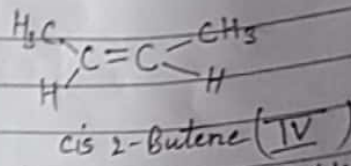 H3C CH3
C=C
H H
cis 2-Butene (IV)